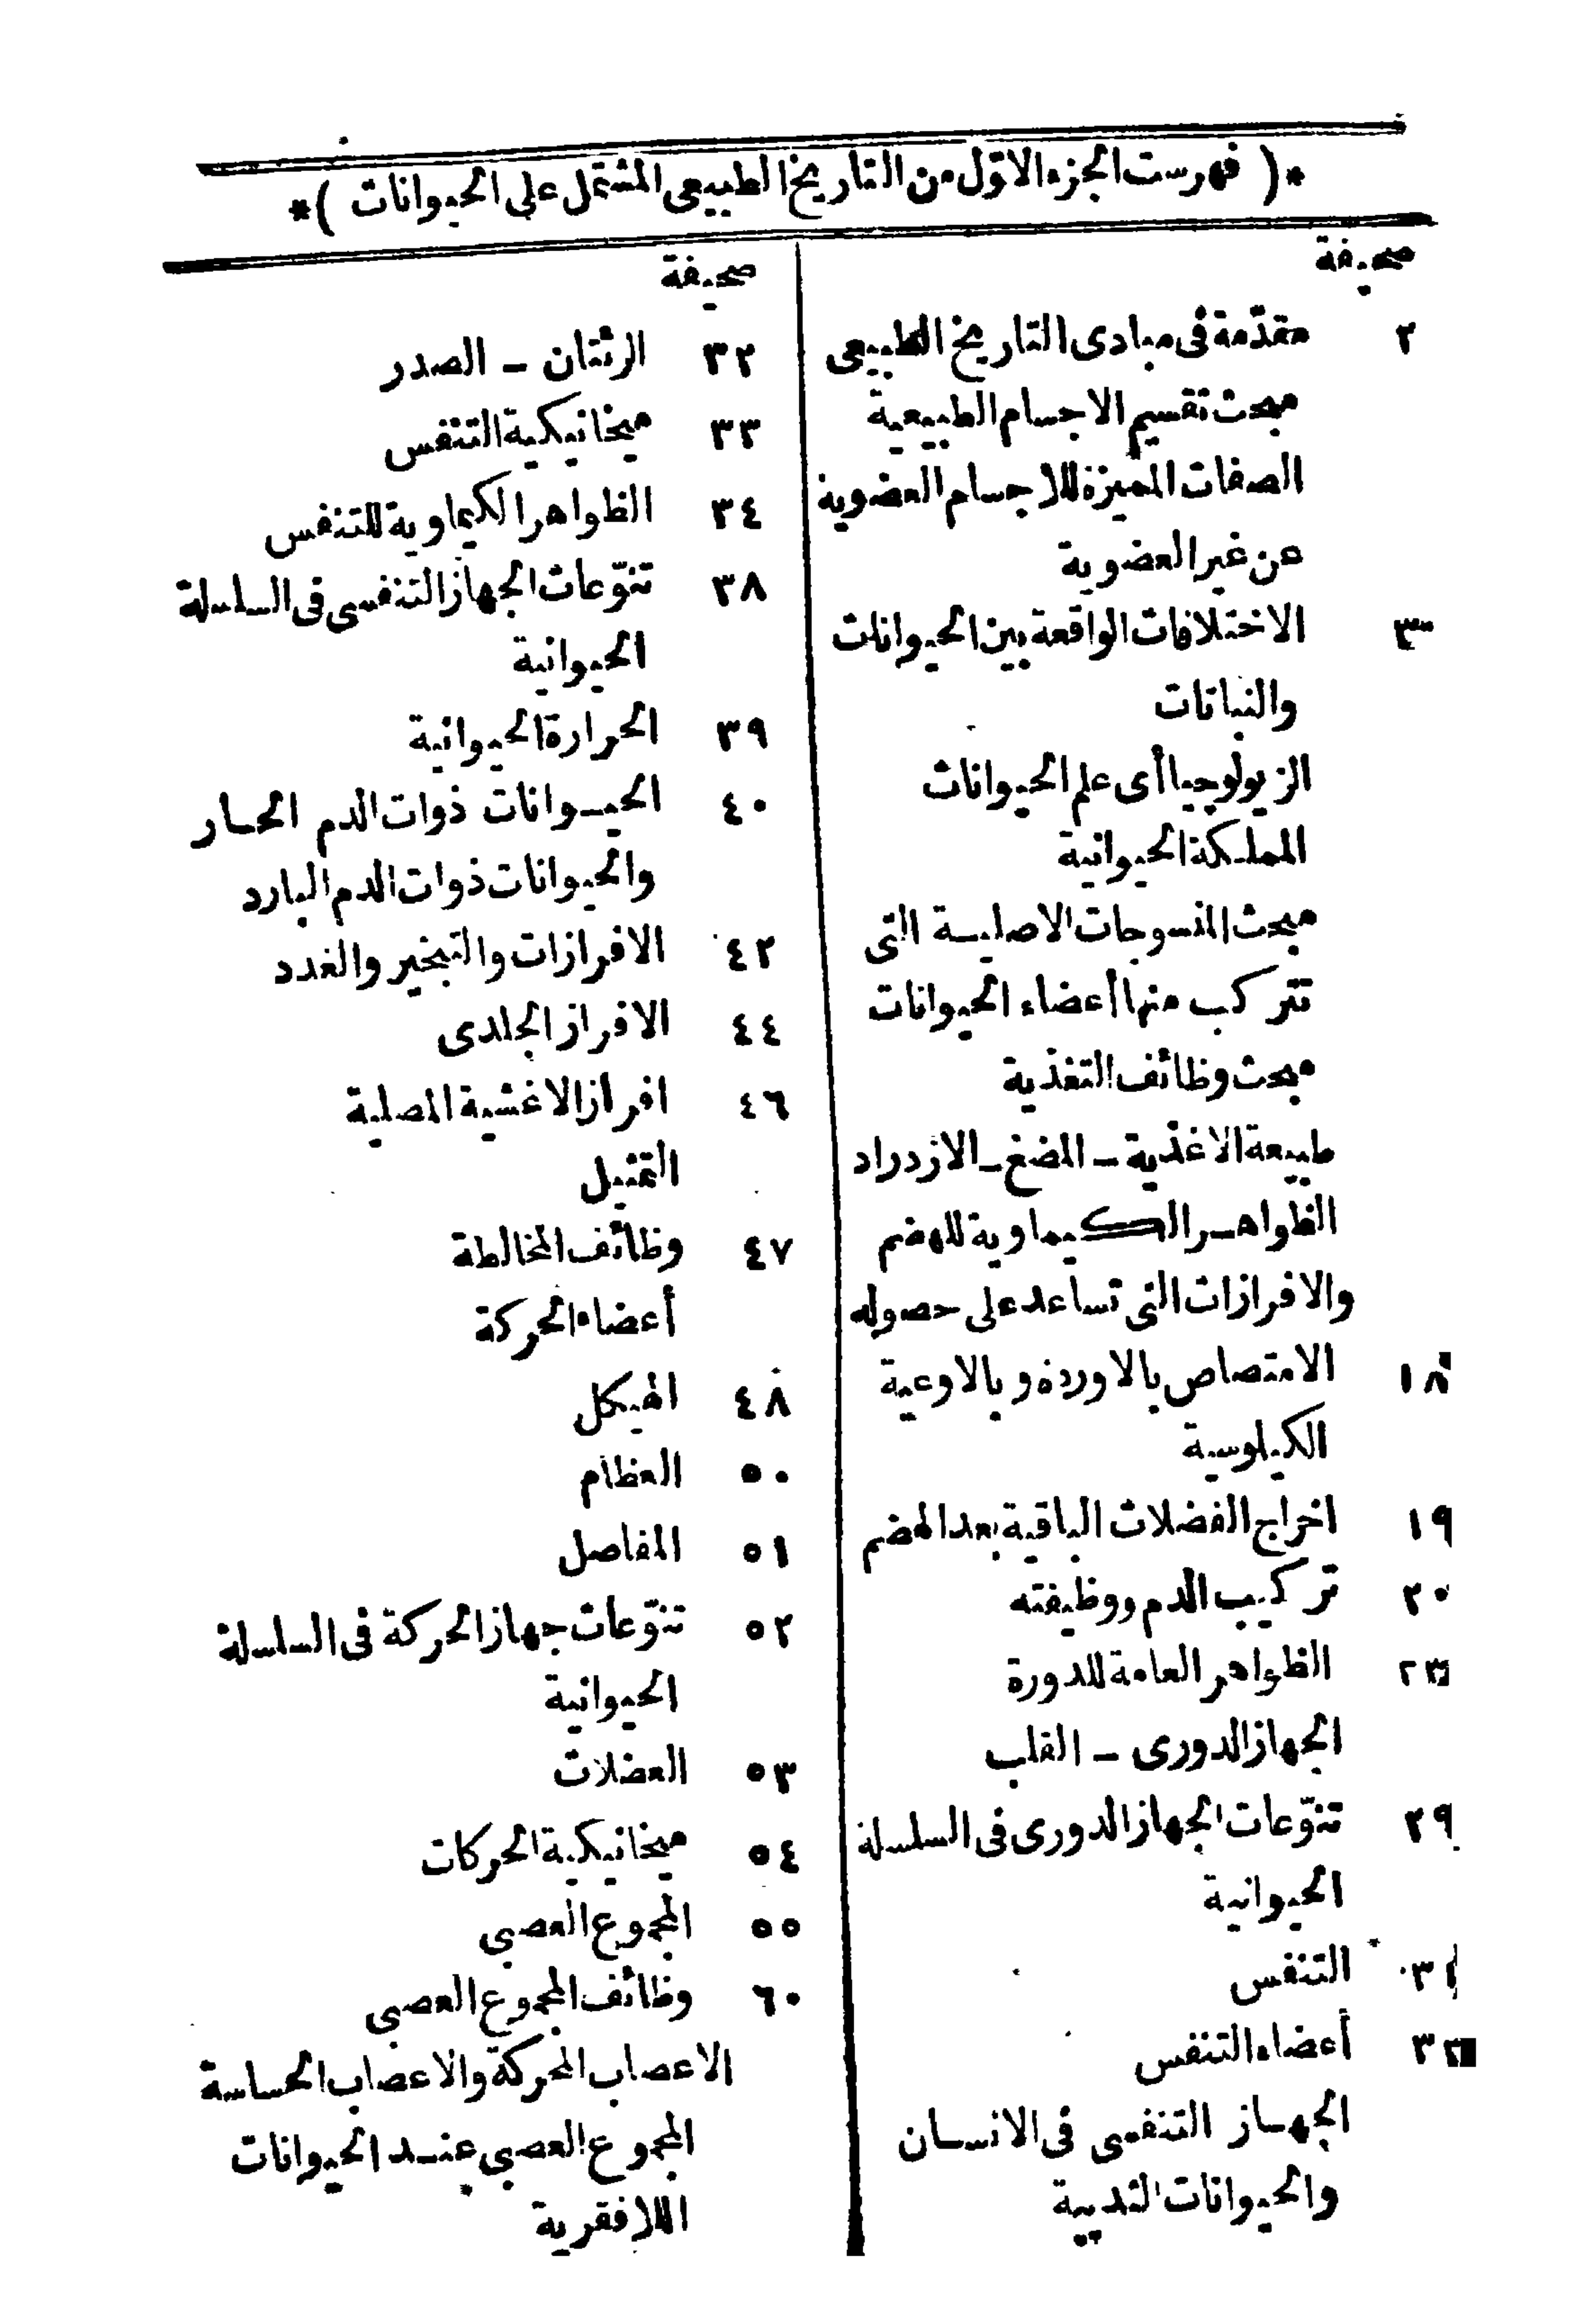 *( فهرست الجزء الاوّل من التاريخ الطبيعى المشتمل على الحيوانات )*
صحيفة
٢ مقدّمة فى مبادى التاريخ الطبيعى
مبحث تقسيم الاجسام الطبيعية
الصفات المميزة للاجسام العضوية
عن غير العضوية
٣ الاختلافات الواقعة بين الحيوانات
والنباتات
الزيولوجيا أى علم الحيوانات
المملكة الحيوانية
مبحث المنسوجات الاصلية التى
تتركب منها أعضاء الحيوانات
مبحث وظائف التغذية
طبيعة الاغذية - المضغ - الازدراد
الظواهر الكيماوية للهضم
والافرازات التى تساعد على حصوله
١٨ الامتصاص بالاوردة وبالاوعية
الكيلوسية
١٩ اخراج الفضلات الباقية بعد الهضم
٢٠ تركيب الدم ووظيفته
٢٣ الظواهر العامة للدورة
الجهاز الدورى - القلب
٢٩ تنوّعات الجهاز الدورى فى السلسلة
الحيوانية
٣١ التنفس
٣٢ أعضاء التنفس
الجهاز التنفسى فى الانسان
والحيوانات الثديية
صحيفة
٣٢ الرئتان - الصدر
٣٣ ميخانيكية التنفس
٣٤ الظواهر الكيماوية للتنفس
٣٨ تنوّعات الجهاز التنفسى فى السلسلة
الحيوانية
٣٩ الحرارة الحيوانية
٤٠ الحيوانات ذوات الدم الحار
والحيوانات ذوات الدم البارد
٤٢ الافرازات والتبخير والغدد
٤٤ الافراز الجلدى
٤٦ افراز الاغشية المصلية
التمثيل
٤٧ وظائف المخالطة
أعضاء الحركة
٤٨ الهيكل
٥٠ العظام
٥١ المفاصل
٥٢ تنوّعات جهاز الحركة فى السلسلة
الحيوانية
٥٣ العضلات
٥٤ ميخانيكية الحركات
٥٥ المجموع العصبى
٦٠ وظائف المجموع العصبى
الاعصاب المحركة والاعصاب الحساسة
المجموع العصبى عند الحيوانات
اللافقرية